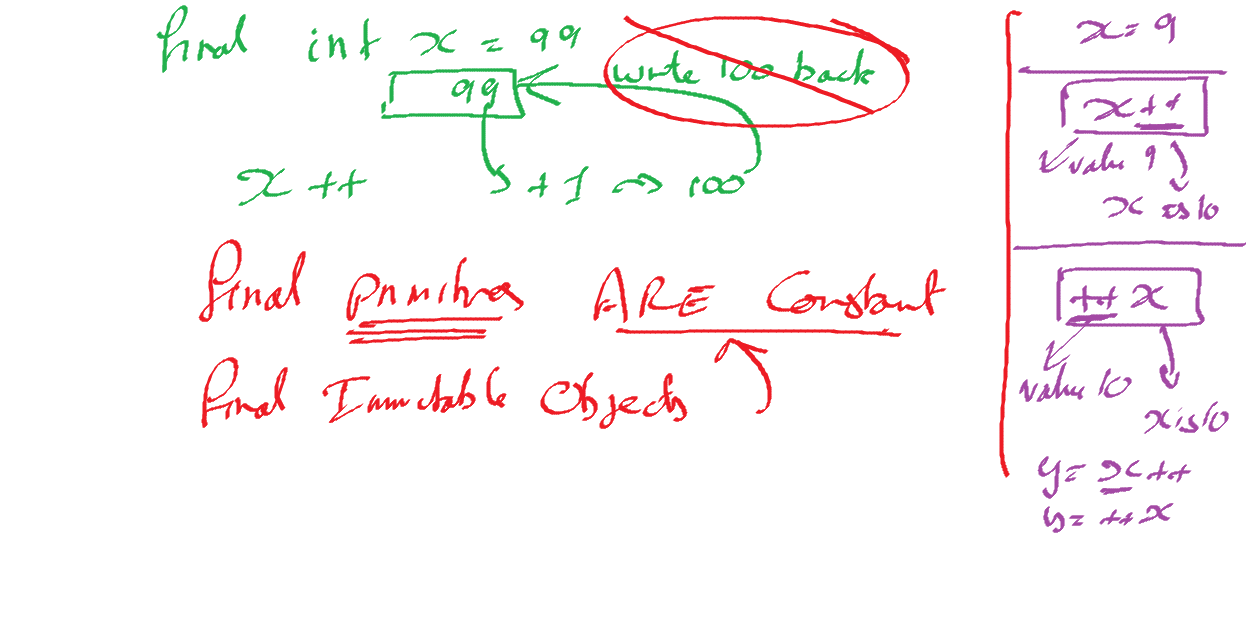 final int x = 99
write 100 back
99
x ++
+1 => 100
final Primitives ARE Constant
final Immutable Objects
x = 9
x++
value 9
x is 10
++x
value 10
x is 10
y = x++
y = ++x